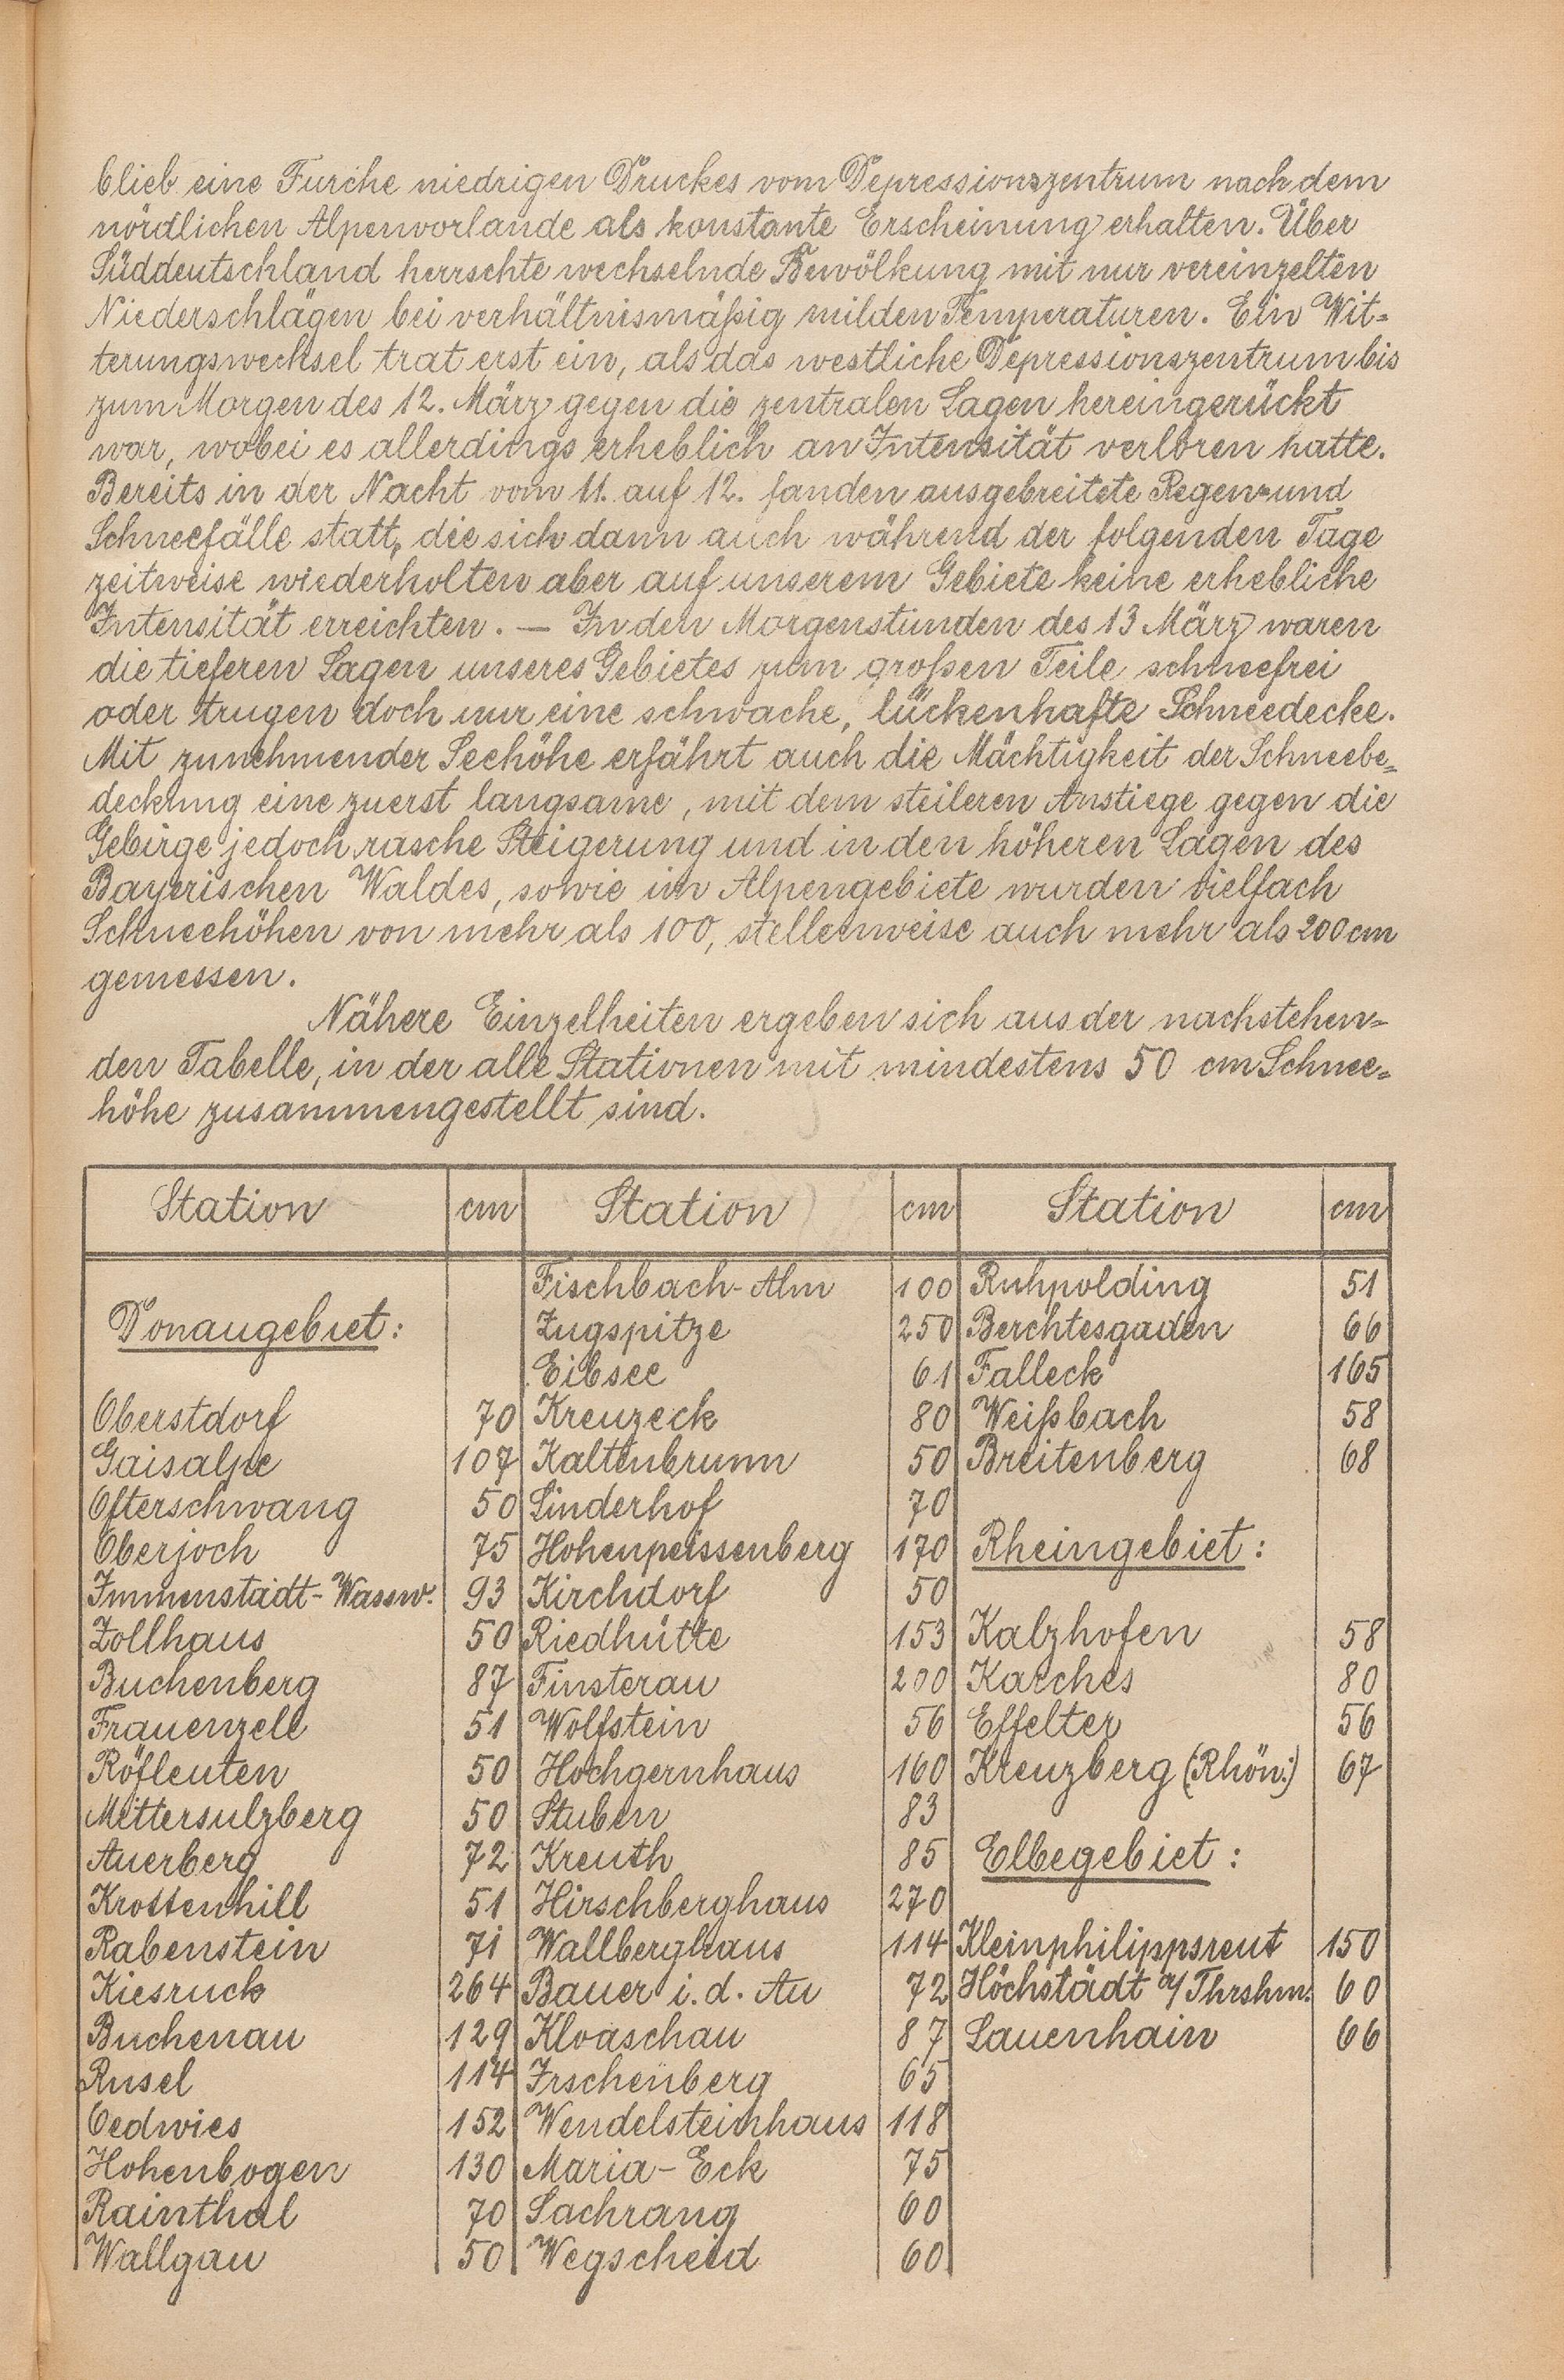 blieb eine Furche niedrigen Druckes vom Depressionszentrum nach dem
nördlichen Alpenvorlande als konstante Erscheinung erhalten. Über
Süddeutschland herrschte wechselnde Bewölkung mit nur vereinzelten
Niederschlägen bei verhältnismäßig milden Temperaturen. Ein Wit-
terungswechsel trat erst ein, als das westliche Depressionszentrum bis
zum Morgen des 12. März gegen die zentralen Lagen hereingerückt
war, wobei es allerdings erheblich an Intensität verloren hatte.
Bereits in der Nacht vom 11. auf 12. fanden ausgebreitete Regen- und
Schneefälle statt, die sich dann auch während der folgenden Tage
zeitweise wiederholten aber auf unserem Gebiete keine erhebliche
Intensität erreichten. — In den Morgenstunden des 13 März waren
die tieferen Lagen unseres Gebietes zum großen Teile schneefrei
oder trugen doch nur eine schwache, lückenhafte Schneedecke.
Mit zunehmender Seehöhe erfährt auch die Mächtigkeit der Schneebe-
deckung eine zuerst langsame, mit dem steileren Anstiege gegen die
Gebirge jedoch rasche Steigerung und in den höheren Lagen des
Bayerischen Waldes, sowie im Alpengebiete wurden vielfach
Schneehöhen von mehr als 100, stellenweise auch mehr als 200 cm
gemessen.
Nähere Einzelheiten ergeben sich aus der nachstehen-
den Tabelle, in der alle Stationen mit mindestens 50 cm Schnee-
höhe zusammengestellt sind.
Station cm Station cm Station cm
Fischbach-Alm 100 Ruhpolding 51
Donaugebiet: Zugspitze 250 Berchtesgaden 66
Eibsee 61 Falleck 165
Oberstdorf 70 Kreuzeck 80 Weißbach 58
Gaisalpe 107 Kaltenbrunn 50 Breitenberg 68
Ofterschwang 50 Linderhof 70
Oberjoch 75 Hohenpeissenberg 170 Rheingebiet:
Immenstadt-Wassw. 93 Kirchdorf 50
Zollhaus 50 Riedhütte 153 Kalzhofen 58
Buchenberg 87 Finsterau 200 Karches 80
Frauenzell 51 Wolfstein 56 Effelter 56
Röfleuten 50 Hochgernhaus 160 Kreuzberg (Rhön.) 67
Mittersulzberg 50 Stuben 83
Auerberg 72 Kreuth 85 Elbegebiet:
Krottenhill 51 Hirschberghaus 270
Rabenstein 71 Wallberghaus 114 Kleinphilippsreut 150
Kiesruck 264 Bauer i. d. Au 72 Höchstädt a/ Thrshm. 60
Buchenau 129 Kloaschau 87 Lauenhain 66
Rusel 114 Irschenberg 65
Oedwies 152 Wendelsteinhaus 118
Hohenbogen 130 Maria-Eck 75
Rainthal 70 Sachrang 60
Wallgau 50 Wegscheid 60